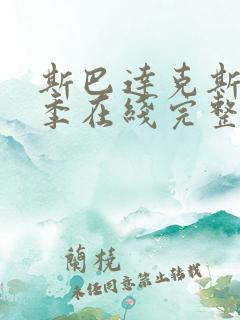 斯巴达克斯
季在线完整
兰桡
未经同意禁止转载